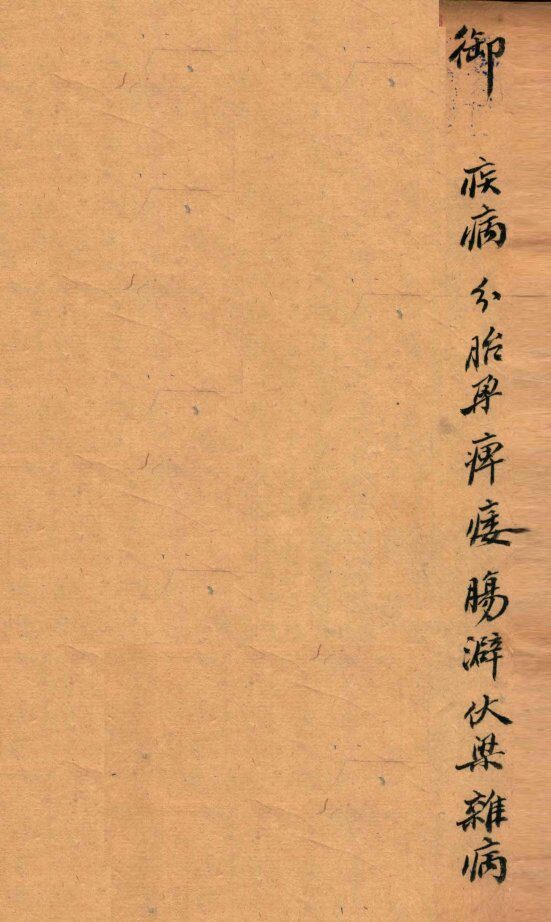 御 疾病 分胎孕 痺痿 腸澼 伏梁 雜病